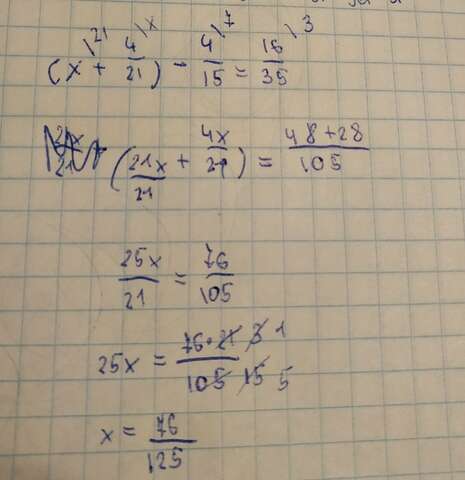 (x \21 + 4/21 \x) - 4/15 \7 = 16/35 \3
(21x/21 + 4x/21) = 48+28/105
25x/21 = 76/105
25x = 76·21 3 1/105 15 5
x = 76/125